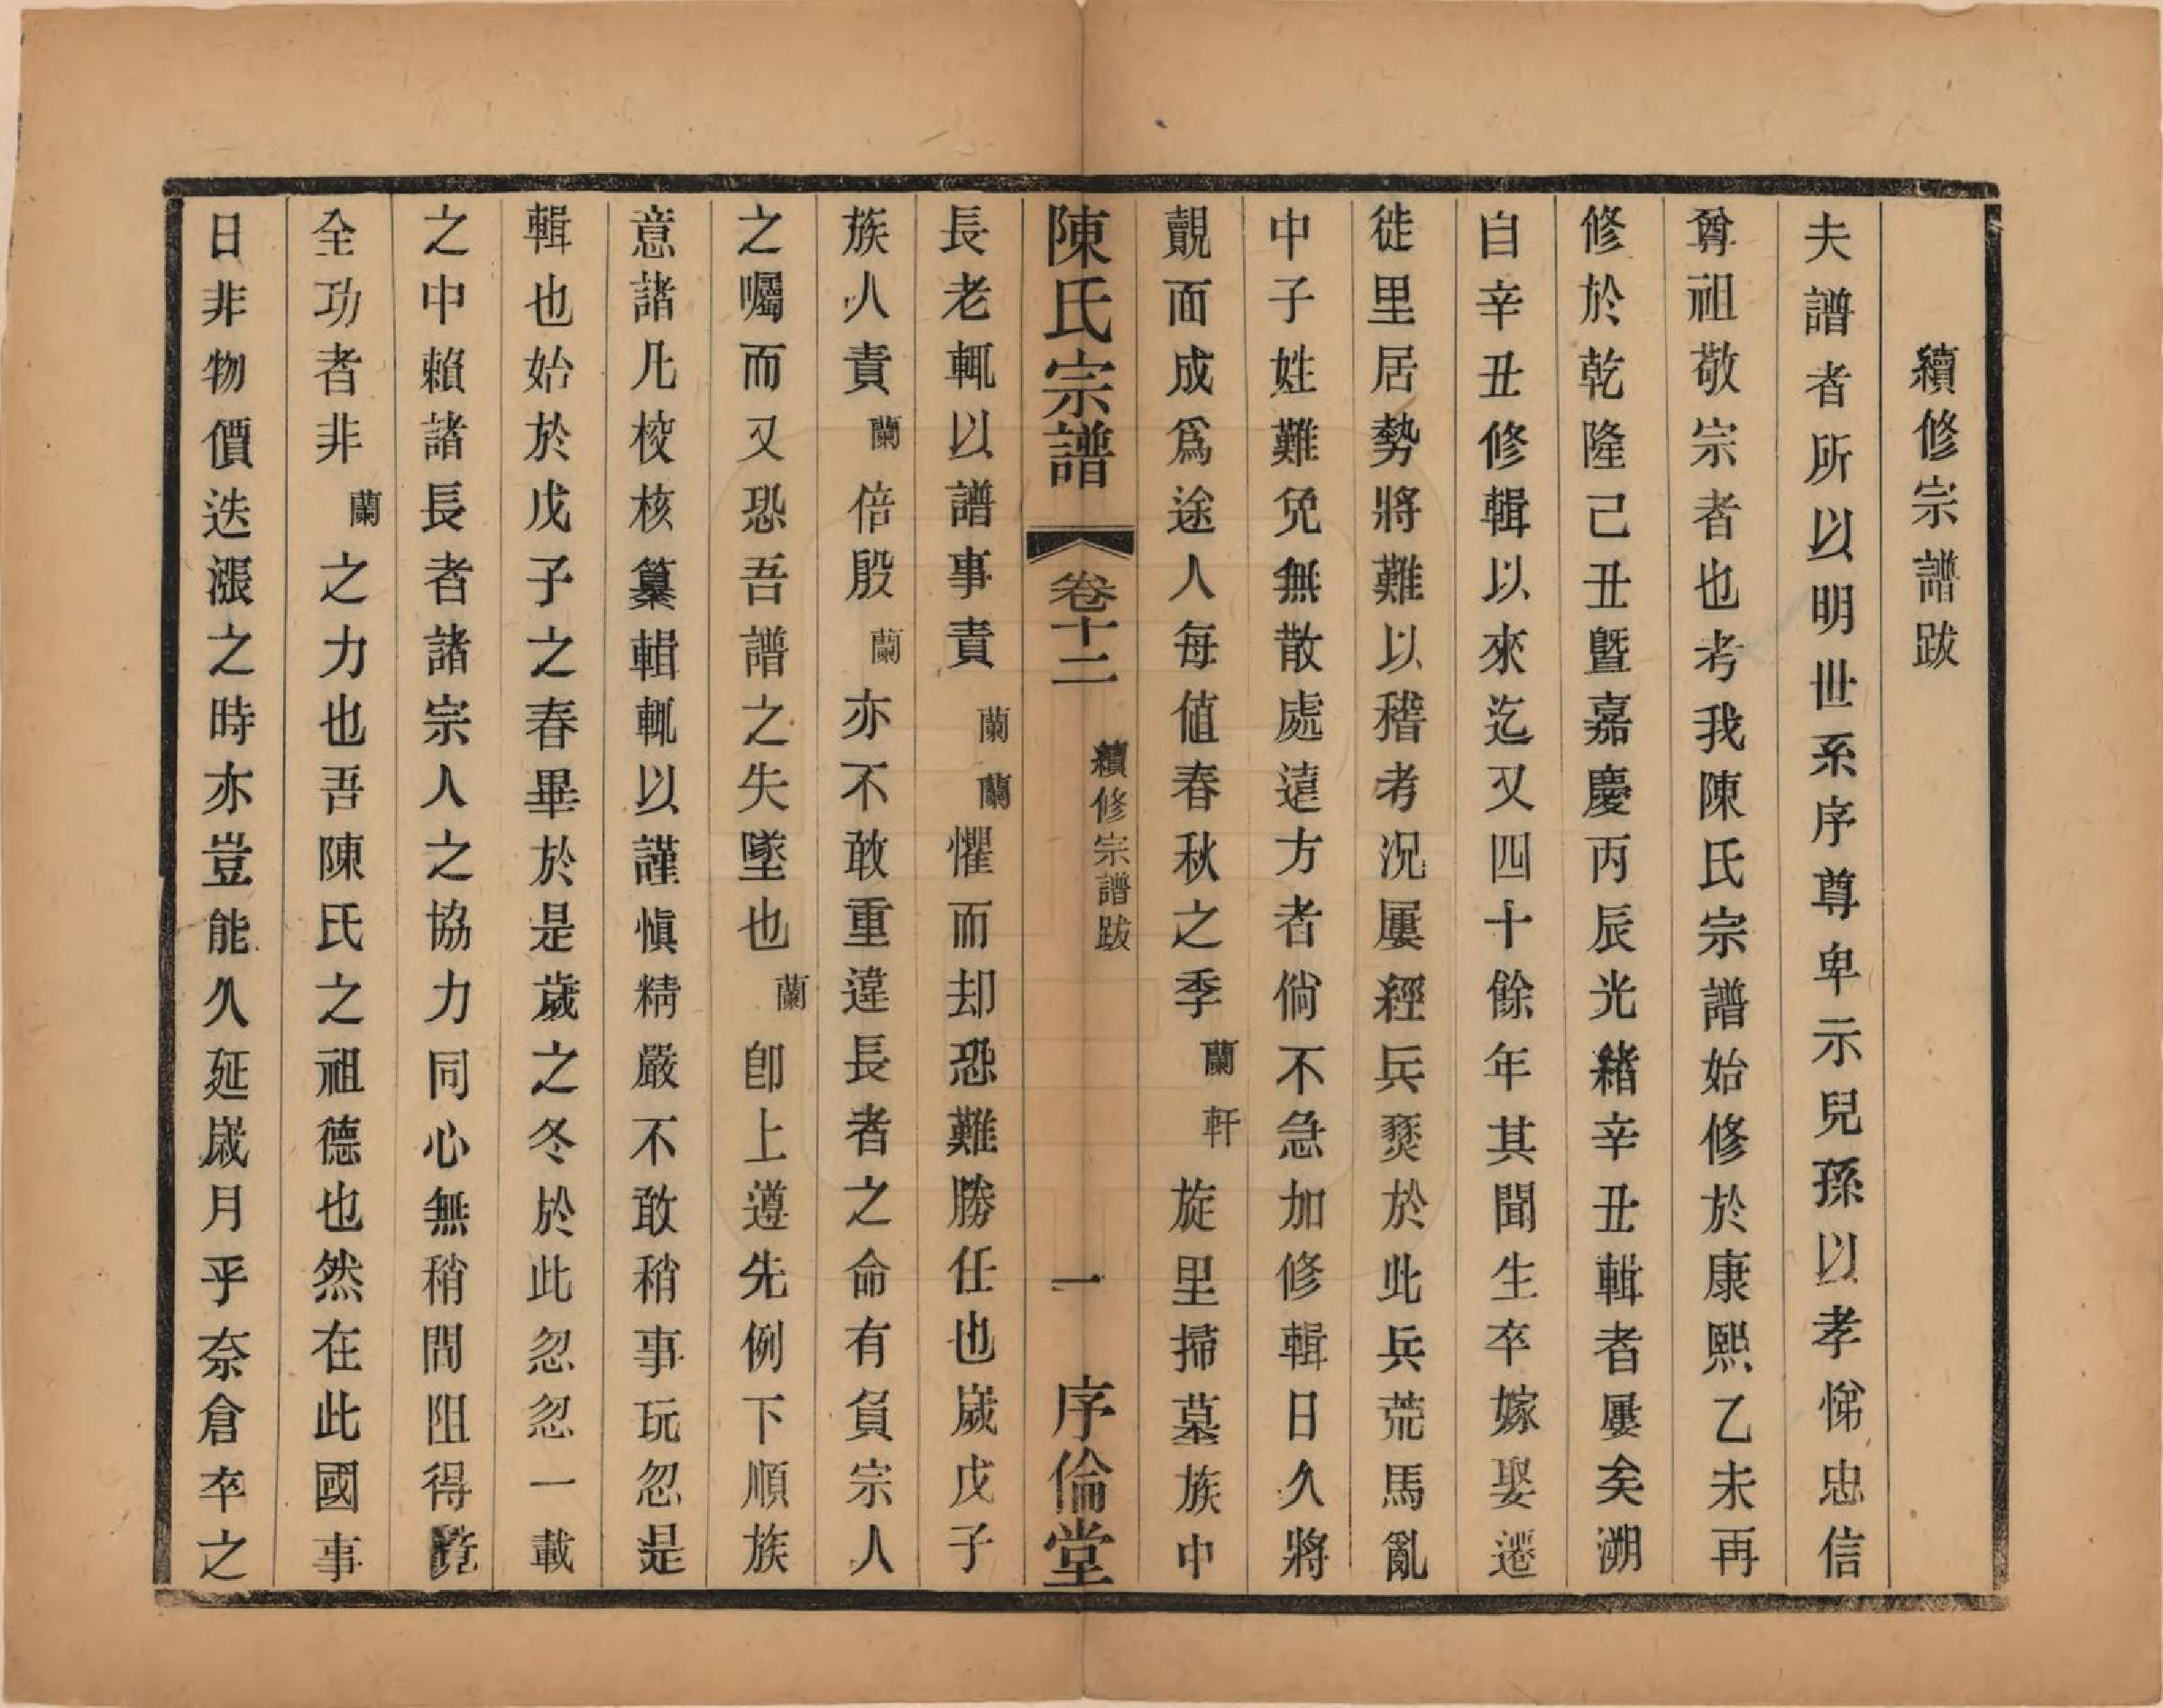 續修宗譜跋
夫譜者所以明世系序尊卑示兒孫以孝悌忠信
尊祖敬宗者也考我陳氏宗譜始修於康熙乙未再
修於乾隆己丑曁嘉慶丙辰光緖辛丑輯者屢矣溯
自辛丑修輯以來迄又四十餘年其聞生卒嫁娶遷
徙里居勢將難以稽考況屢經兵燹於此兵荒馬亂
中子姓難免無散處遠方者倘不急加修輯日久將
覿面成爲途人每値春秋之季蘭軒旋里掃墓族中
陳氏宗譜 卷十二 續修宗譜跋 一 序倫堂
長老輒以譜事責蘭蘭懼而却恐難勝任也嵗戊子
族人責蘭倍殷蘭亦不敢重違長者之命有負宗人
之囑而又恐吾譜之失墜也蘭卽上遵先例下順族
意諸凡校核纂輯輒以謹愼精嚴不敢稍事玩忽是
輯也始於戊子之春畢於是歲之冬於此忽忽一載
之中賴諸長者諸宗人之協力同心無稍間阻得竟
全功者非蘭之力也吾陳氏之祖德也然在此國事
日非物價迭漲之時亦豈能久延嵗月乎奈倉卒之